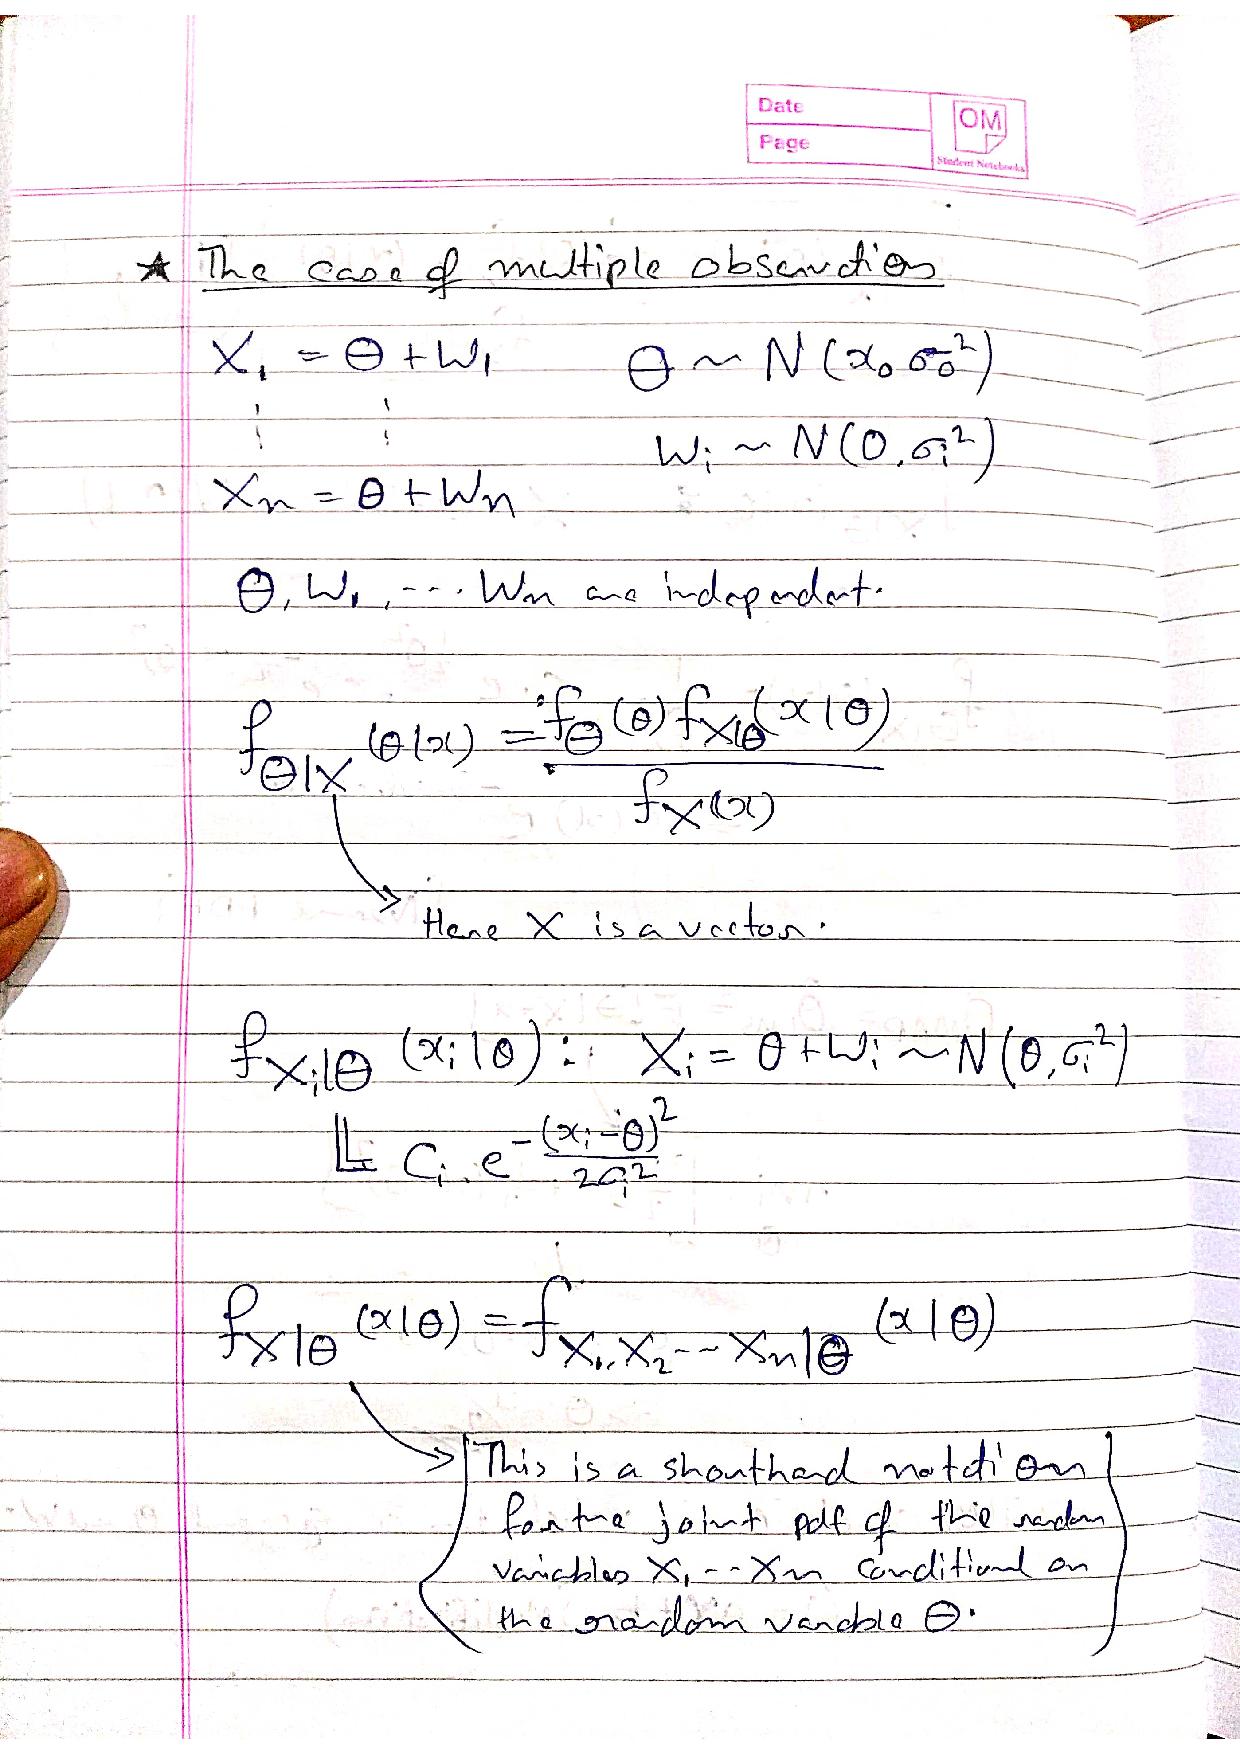 Date
Page
OM
Student Notebooks
★ The case of multiple observation
X₁ = Θ + W₁    Θ ~ N(x₀ σ₀²)
Wᵢ ~ N(0, σᵢ²)
Xn = Θ + Wn
Θ, W₁, --- Wn are independent.
f_Θ|X (θ|x) = f_Θ(θ) f_X|Θ(x|θ)
f_X(x)
Here X is a vector.
f_Xᵢ|Θ (xᵢ|θ) : Xᵢ = θ + Wᵢ ~ N(θ, σᵢ²)
Cᵢ . e^-(xᵢ-θ)²/2σᵢ²
f_X|Θ (x|θ) = f_X₁,X₂--Xn|Θ (x|θ)
This is a shorthand notation
for the joint pdf of the random
variables X₁--Xn conditional on
the random variable Θ.